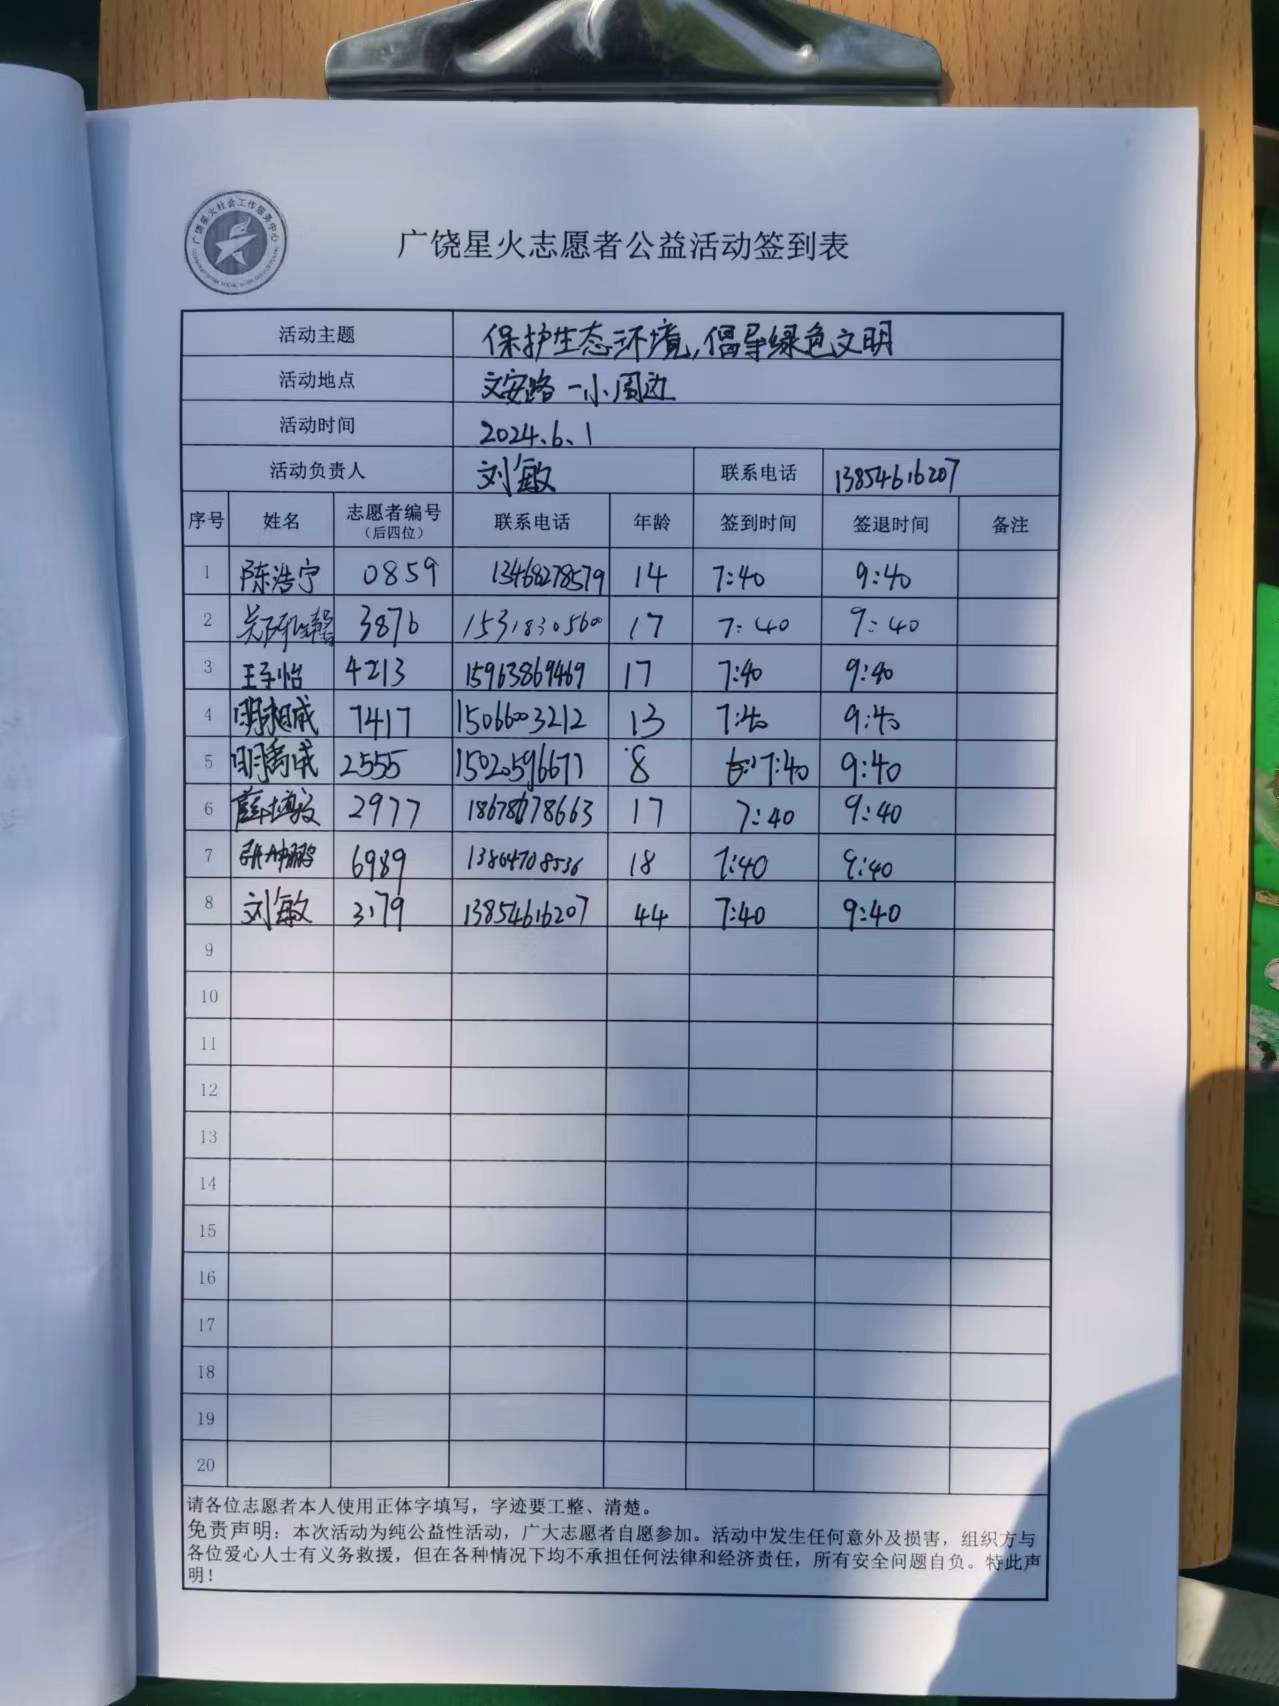 广饶星火社会工作服务中心
广饶星火志愿者公益活动签到表
活动主题 保护生态环境,倡导绿色文明
活动地点 文安路一小周边
活动时间 2024.6.1
活动负责人 刘敏 联系电话 13854616207
序号 姓名 志愿者编号(后四位) 联系电话 年龄 签到时间 签退时间 备注
1 陈浩宁 0859 13468278579 14 7:40 9:40
2 3876 15318305600 17 7:40 9:40
3 王子怡 4213 15963869469 17 7:40 9:40
4 明相成 7417 15066003212 13 7:40 9:40
5 明禹成 2555 15020596677 8 7:40 9:40
6 薛博文 2977 18678678663 17 7:40 9:40
7 6989 13864708536 18 7:40 9:40
8 刘敏 3179 13854616207 44 7:40 9:40
9
10
11
12
13
14
15
16
17
18
19
20
请各位志愿者本人使用正体字填写，字迹要工整、清楚。
免责声明：本次活动为纯公益性活动，广大志愿者自愿参加。活动中发生任何意外及损害，组织方与
各位爱心人士有义务救援，但在各种情况下均不承担任何法律和经济责任，所有安全问题自负。特此声
明！